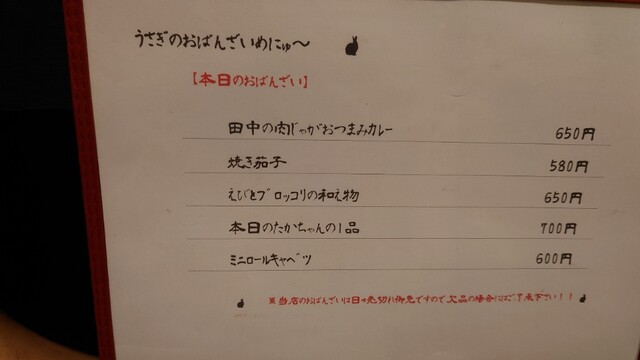 うさぎのおばんざいめにゅ～
【本日のおばんざい】
田中の肉じゃがおつまみカレー 650円
焼き茄子 580円
えびとブロッコリの和え物 650円
本日のたかちゃんの1品 700円
ミニロールキャベツ 600円
※当店のおばんざいは日々売切れ御免ですので欠品の場合はご了承下さい！！